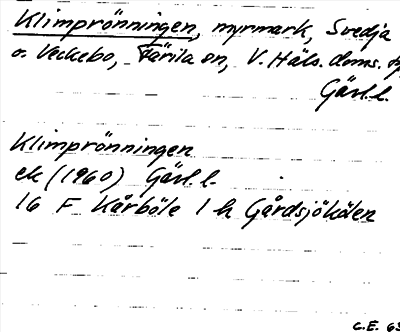 Klimprönningen, myrmark, Svedja
o. Veckebo, Färila sn, V. Häls. doms.
Gävl. l.
Klimprönningen
ek (1960) Gävl. l.
16 F Kårböle 1 h Gårdsjökölen
C.E. 63